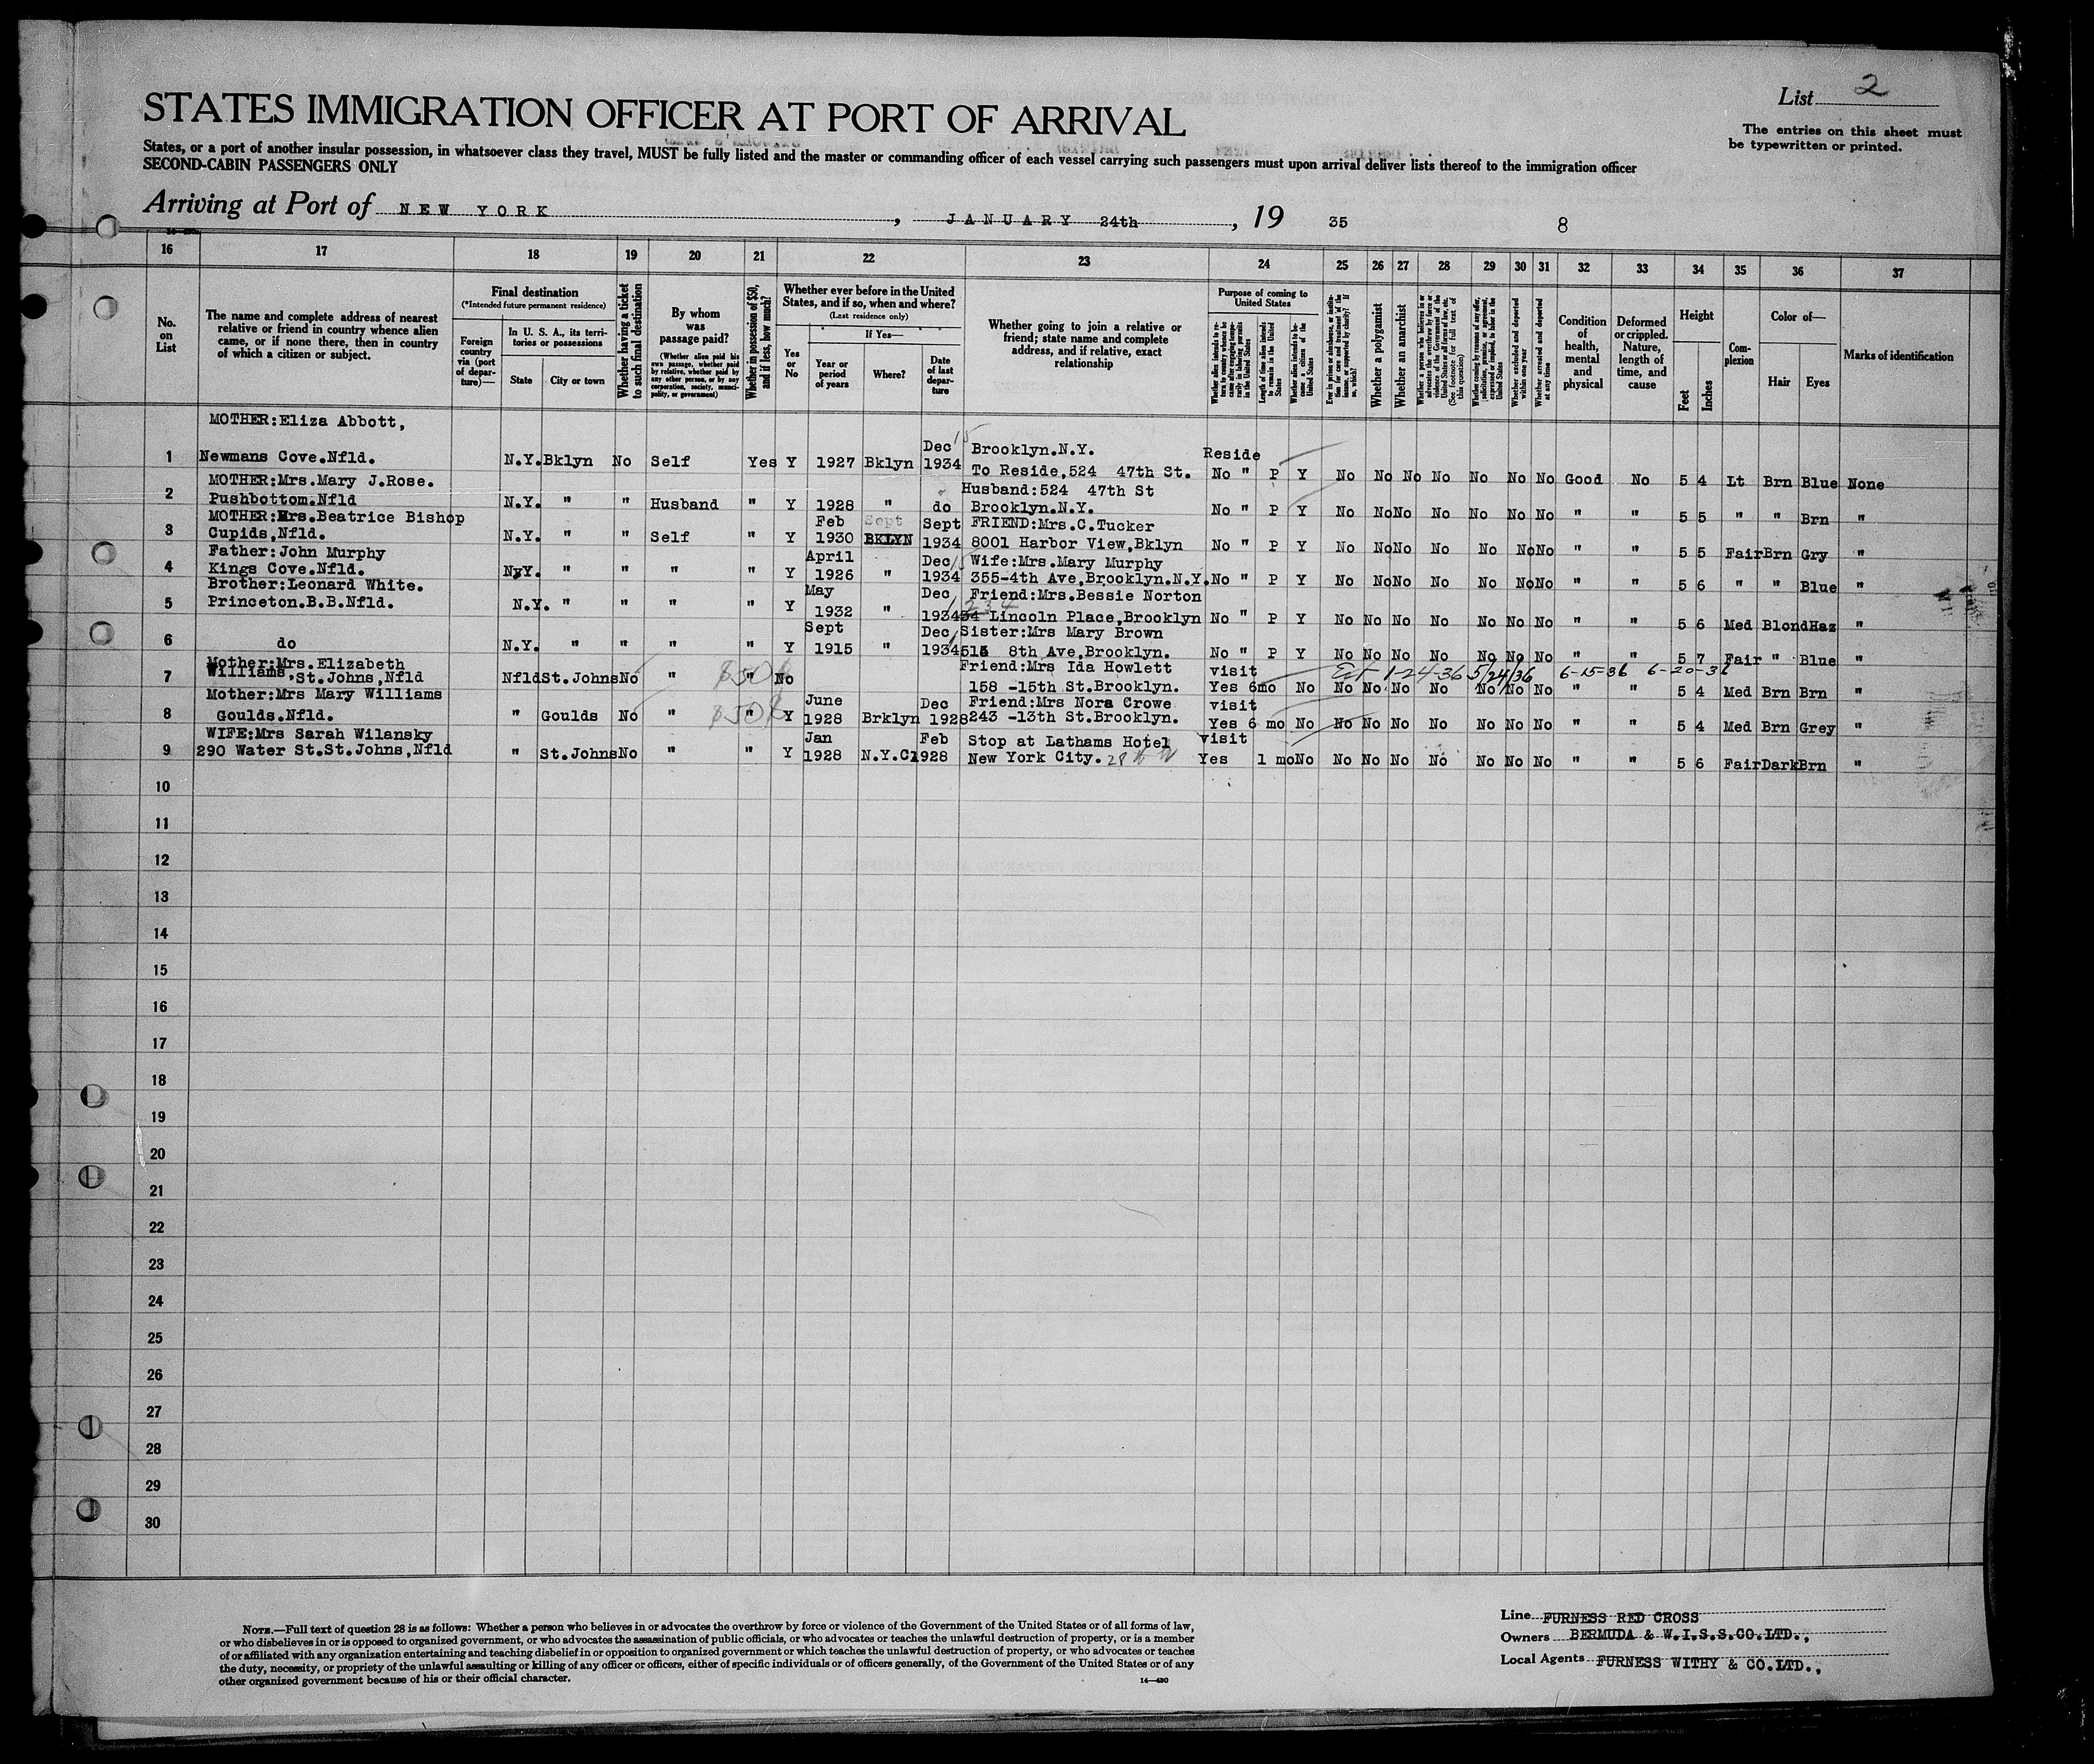 List 2
STATES IMMIGRATION OFFICER AT PORT OF ARRIVAL
The entries on this sheet must
be typewritten or printed.
States, or a port of another insular possession, in whatsoever class they travel, MUST be fully listed and the master or commanding officer of each vessel carrying such passengers must upon arrival deliver lists thereof to the immigration officer
SECOND-CABIN PASSENGERS ONLY
Arriving at Port of NEW YORK, JANUARY 24th, 19 35 8
16 17 18 19 20 21 22 23 24 25 26 27 28 29 30 31 32 33 34 35 36 37
No. on List
The name and complete address of nearest relative or friend in country whence alien came, or if none there, then in country of which a citizen or subject.
Final destination
(*Intended future permanent residence)
Foreign country via (port of departure)—
In U. S. A., its territories or possessions
State
City or town
Whether having a ticket to such final destination
By whom was passage paid?
(Whether alien paid his own passage, whether paid by relative, whether paid by any other person, or by any corporation, society, municipality, or government)
Whether in possession of $50, and if less, how much?
Whether ever before in the United States, and if so, when and where?
(Last residence only)
If Yes—
Yes or No
Year or period of years
Where?
Date of last departure
Whether going to join a relative or friend; state name and complete address, and if relative, exact relationship
Purpose of coming to United States
Length of time alien intends to remain in the United States
Whether alien intends to become a citizen of the United States
Whether a polygamist
Whether an anarchist
Whether excluded and deported within one year
Whether arrested and deported at any time
Condition of health, mental and physical
Deformed or crippled. Nature, length of time, and cause
Height
Feet
Inches
Complexion
Color of—
Hair
Eyes
Marks of identification
MOTHER:Eliza Abbott,
1 Newmans Cove.Nfld. N.Y. Bklyn No Self Yes Y 1927 Bklyn Dec 15 1934 Brooklyn.N.Y. To Reside,524 47th St. Reside No " P Y No No No No No No No Good No 5 4 Lt Brn Blue None
MOTHER:Mrs.Mary J.Rose.
2 Pushbottom.Nfld N.Y. " " Husband " Y 1928 " do Husband:524 47th St Brooklyn.N.Y. No " P Y No No No No No No No " " 5 5 " " Brn "
MOTHER:Mrs.Beatrice Bishop
3 Cupids,Nfld. N.Y. " " Self " Y Feb 1930 Sept BKLYN Sept 1934 FRIEND:Mrs.C.Tucker 8001 Harbor View,Bklyn No " P Y No No No No No No No " " 5 5 Fair Brn Gry "
Father:John Murphy
4 Kings Cove.Nfld. N.Y. " " " " Y April 1926 " Dec 15 1934 Wife:Mrs.Mary Murphy 355-4th Ave,Brooklyn.N.Y. No " P Y No No No No No No No " " 5 6 " " Blue "
Brother:Leonard White.
5 Princeton.B.B.Nfld. N.Y. " " " " Y May 1932 " Dec 1934 Friend:Mrs.Bessie Norton 234 Lincoln Place,Brooklyn No " P Y No No No No No No No " " 5 6 Med Blond Haz "
6 do N.Y. " " " " Y Sept 1915 " Dec 1934 Sister:Mrs Mary Brown 515 8th Ave,Brooklyn. No " P Y No No No No No No No " " 5 7 Fair " Blue "
Mother:Mrs.Elizabeth
7 Williams,St.Johns,Nfld Nfld St.Johns No " $50 " No Friend:Mrs Ida Howlett 158 -15th St.Brooklyn. visit Yes 6mo No Ext 1-24-36 5/24/36 6-15-36 6-20-36 No No No No No No No " " 5 4 Med Brn Brn "
Mother:Mrs Mary Williams
8 Goulds.Nfld. " Goulds No " $50 " Y June 1928 Brklyn Dec 1928 Friend:Mrs Nora Crowe 243 -13th St.Brooklyn. visit Yes 6 mo No No No No No No No No " " 5 4 Med Brn Grey "
WIFE:Mrs Sarah Wilansky
9 290 Water St.St.Johns,Nfld " St.Johns No " " Y Jan 1928 N.Y.C Feb 1928 Stop at Lathams Hotel New York City. visit Yes 1 mo No No No No No No No No " " 5 6 Fair Dark Brn "
10
11
12
13
14
15
16
17
18
19
20
21
22
23
24
25
26
27
28
29
30
NOTE.—Full text of question 28 is as follows: Whether a person who believes in or advocates the overthrow by force or violence of the Government of the United States or of all forms of law,
or who disbelieves in or is opposed to organized government, or who advocates the assassination of public officials, or who advocates or teaches the unlawful destruction of property, or is a member
of or affiliated with any organization entertaining and teaching disbelief in or opposition to organized government or which teaches the unlawful destruction of property, or who advocates or teaches
the duty, necessity, or propriety of the unlawful assaulting or killing of any officer or officers, either of specific individuals or of officers generally, of the Government of the United States or of any
other organized government because of his or their official character.
14—430
Line FURNESS RED CROSS
Owners BERMUDA & W.I.S.S.CO.LTD.,
Local Agents FURNESS WITHY & CO.LTD.,